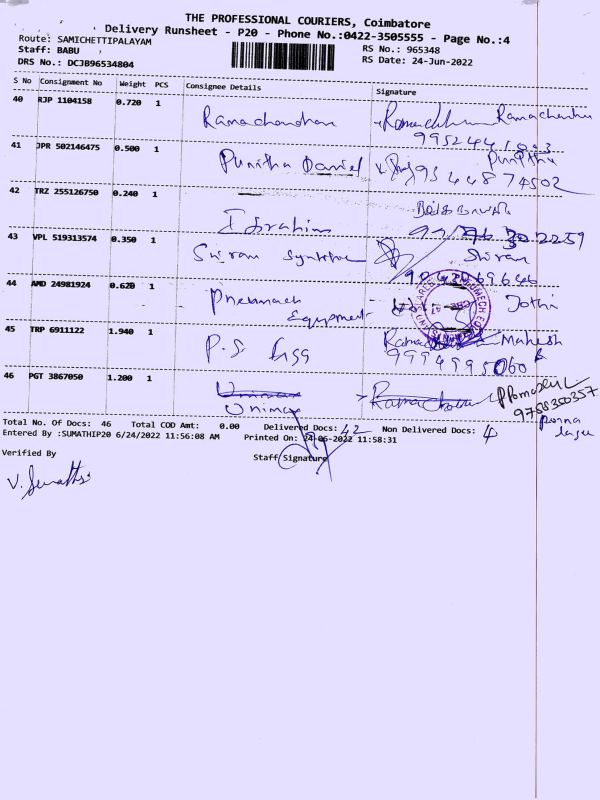 THE PROFESSIONAL COURIERS, Coimbatore
Delivery Runsheet - P20 - Phone No.:0422-3505555 - Page No.:4
Route: SAMICHETTIPALAYAM
RS No.: 965348
Staff: BABU
RS Date: 24-Jun-2022
DRS No.: DCJB96534804
S No Consignment No Weight PCS Consignee Details Signature
40 RJP 1104158 0.720 1 Ramachandran Ramachandra
41 JPR 502146475 0.500 1 Punitha Daniel
9344874502
42 TRZ 255126750 0.240 1 Ibrahim
43 VPL 519313574 0.350 1 Sriram Sriram
44 AMD 24981924 0.620 1 Pneumach Jothi
Equipment
45 TRP 6911122 1.940 1 P.S. Egg Mahesh
9994995060
46 PGT 3867050 1.200 1 Unimax
9788350357
Total No. Of Docs: 46 Total COD Amt: 0.00 Delivered Docs: 42 Non Delivered Docs: 4
Entered By :SUMATHIP20 6/24/2022 11:56:08 AM Printed On: 24-06-2022 11:58:31
Verified By Staff Signature
V. Sumathi